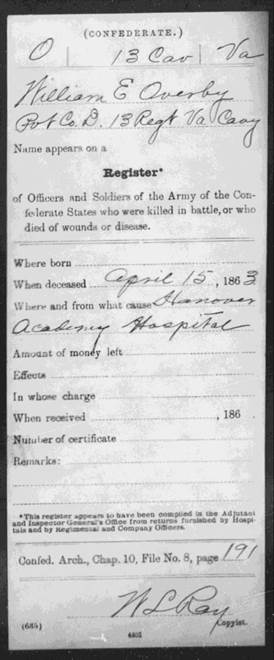 (CONFEDERATE.)
O | 13 Cav | Va
William E Overby
Pvt Co. D. 13 Regt Va Cavy
Name appears on a
Register*
of Officers and Soldiers of the Army of the Con-
federate States who were killed in battle, or who
died of wounds or disease.
Where born
When deceased April 15, 1863
Where and from what cause Hanover
Academy Hospital
Amount of money left
Effects
In whose charge
When received , 186
Number of certificate
Remarks:
*This register appears to have been compiled in the Adjutant
and Inspector General's Office from returns furnished by Hospi-
tals and by Regimental and Company Officers.
Confed. Arch., Chap. 10, File No. 8, page 191
W L Ray
(635) Copyist.